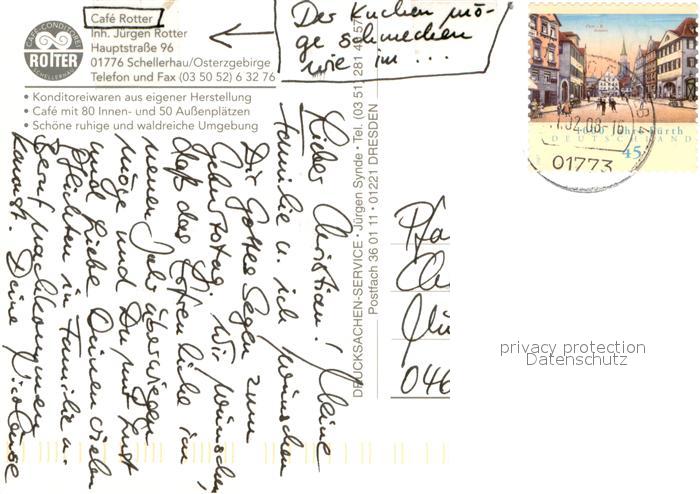 Café Rotter
Inh. Jürgen Rotter
Hauptstraße 96
01776 Schellerhau/Osterzgebirge
Telefon und Fax (03 50 52) 6 32 76
CAFÉ-CONDITOREI
ROTTER
SCHELLERHAU
• Konditoreiwaren aus eigener Herstellung
• Café mit 80 Innen- und 50 Außenplätzen
• Schöne ruhige und waldreiche Umgebung
Der Kuchen mö-
ge schmecken
wie im ...
Lieber Christian! Meine
Familie u. ich wünschen
Dir Gottes Segen zum
Geburtstag. Wir wünschen,
daß das Frohe im
neuen Jahr überwiegen
möge und Du mit Lust
und Liebe Deinen vielen
Pflichten in Familie u.
Beruf nachkommen
kannst. Deine
DRUCKSACHEN-SERVICE • Jürgen Synde • Tel. (03 51) 281 49 57
Postfach 36 01 11 • 01221 DRESDEN
Pfa
Ch
046
1000 Jahre Fürth
DEUTSCHLAND
45
01773
privacy protection
Datenschutz